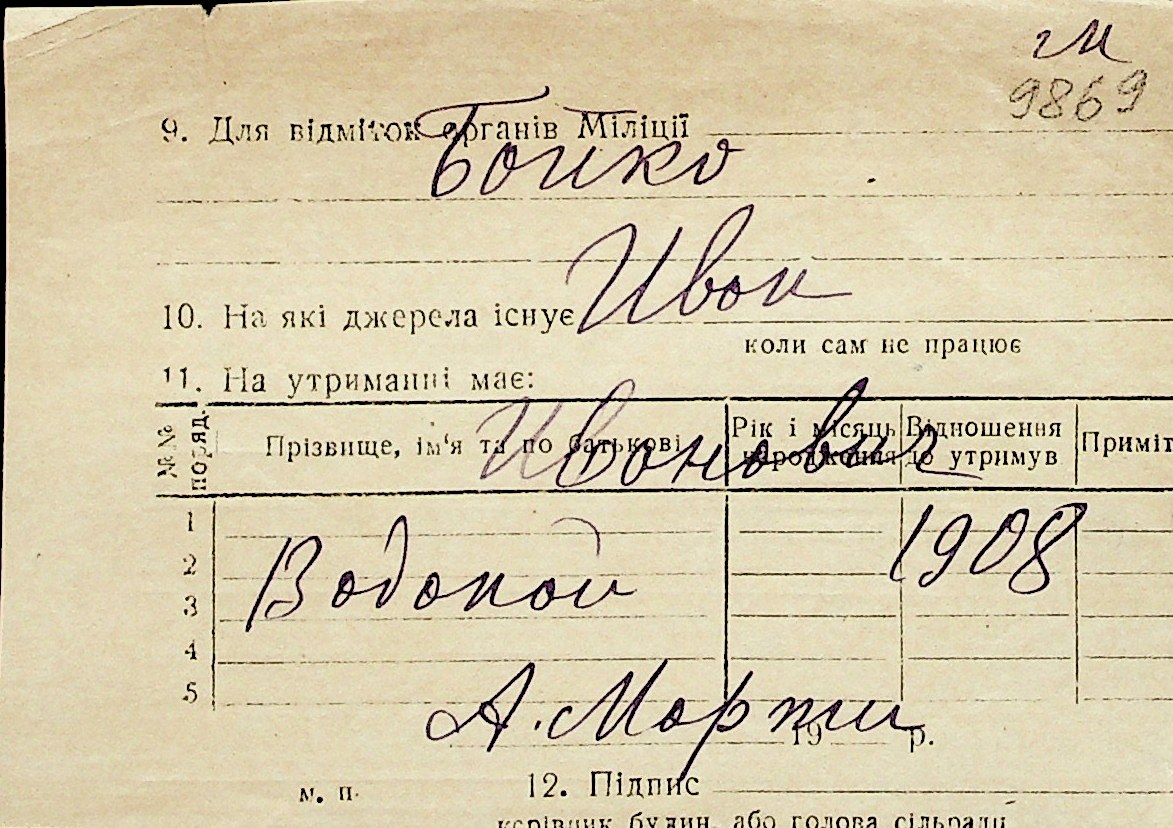 гм
9869
9. Для відміток органів Міліції
Бойко
Иван
10. На які джерела існує
коли сам не працює
11. На утриманні має:
№№ поряд. Прізвище, ім‘я та по батькові Рік і місяць народження Відношення до утримув Приміт
Иванович
1
1908
2
Водопой
3
4
5
А. Марти
19 р.
м. п. 12. Підпис
керівник будин. або голова сільради